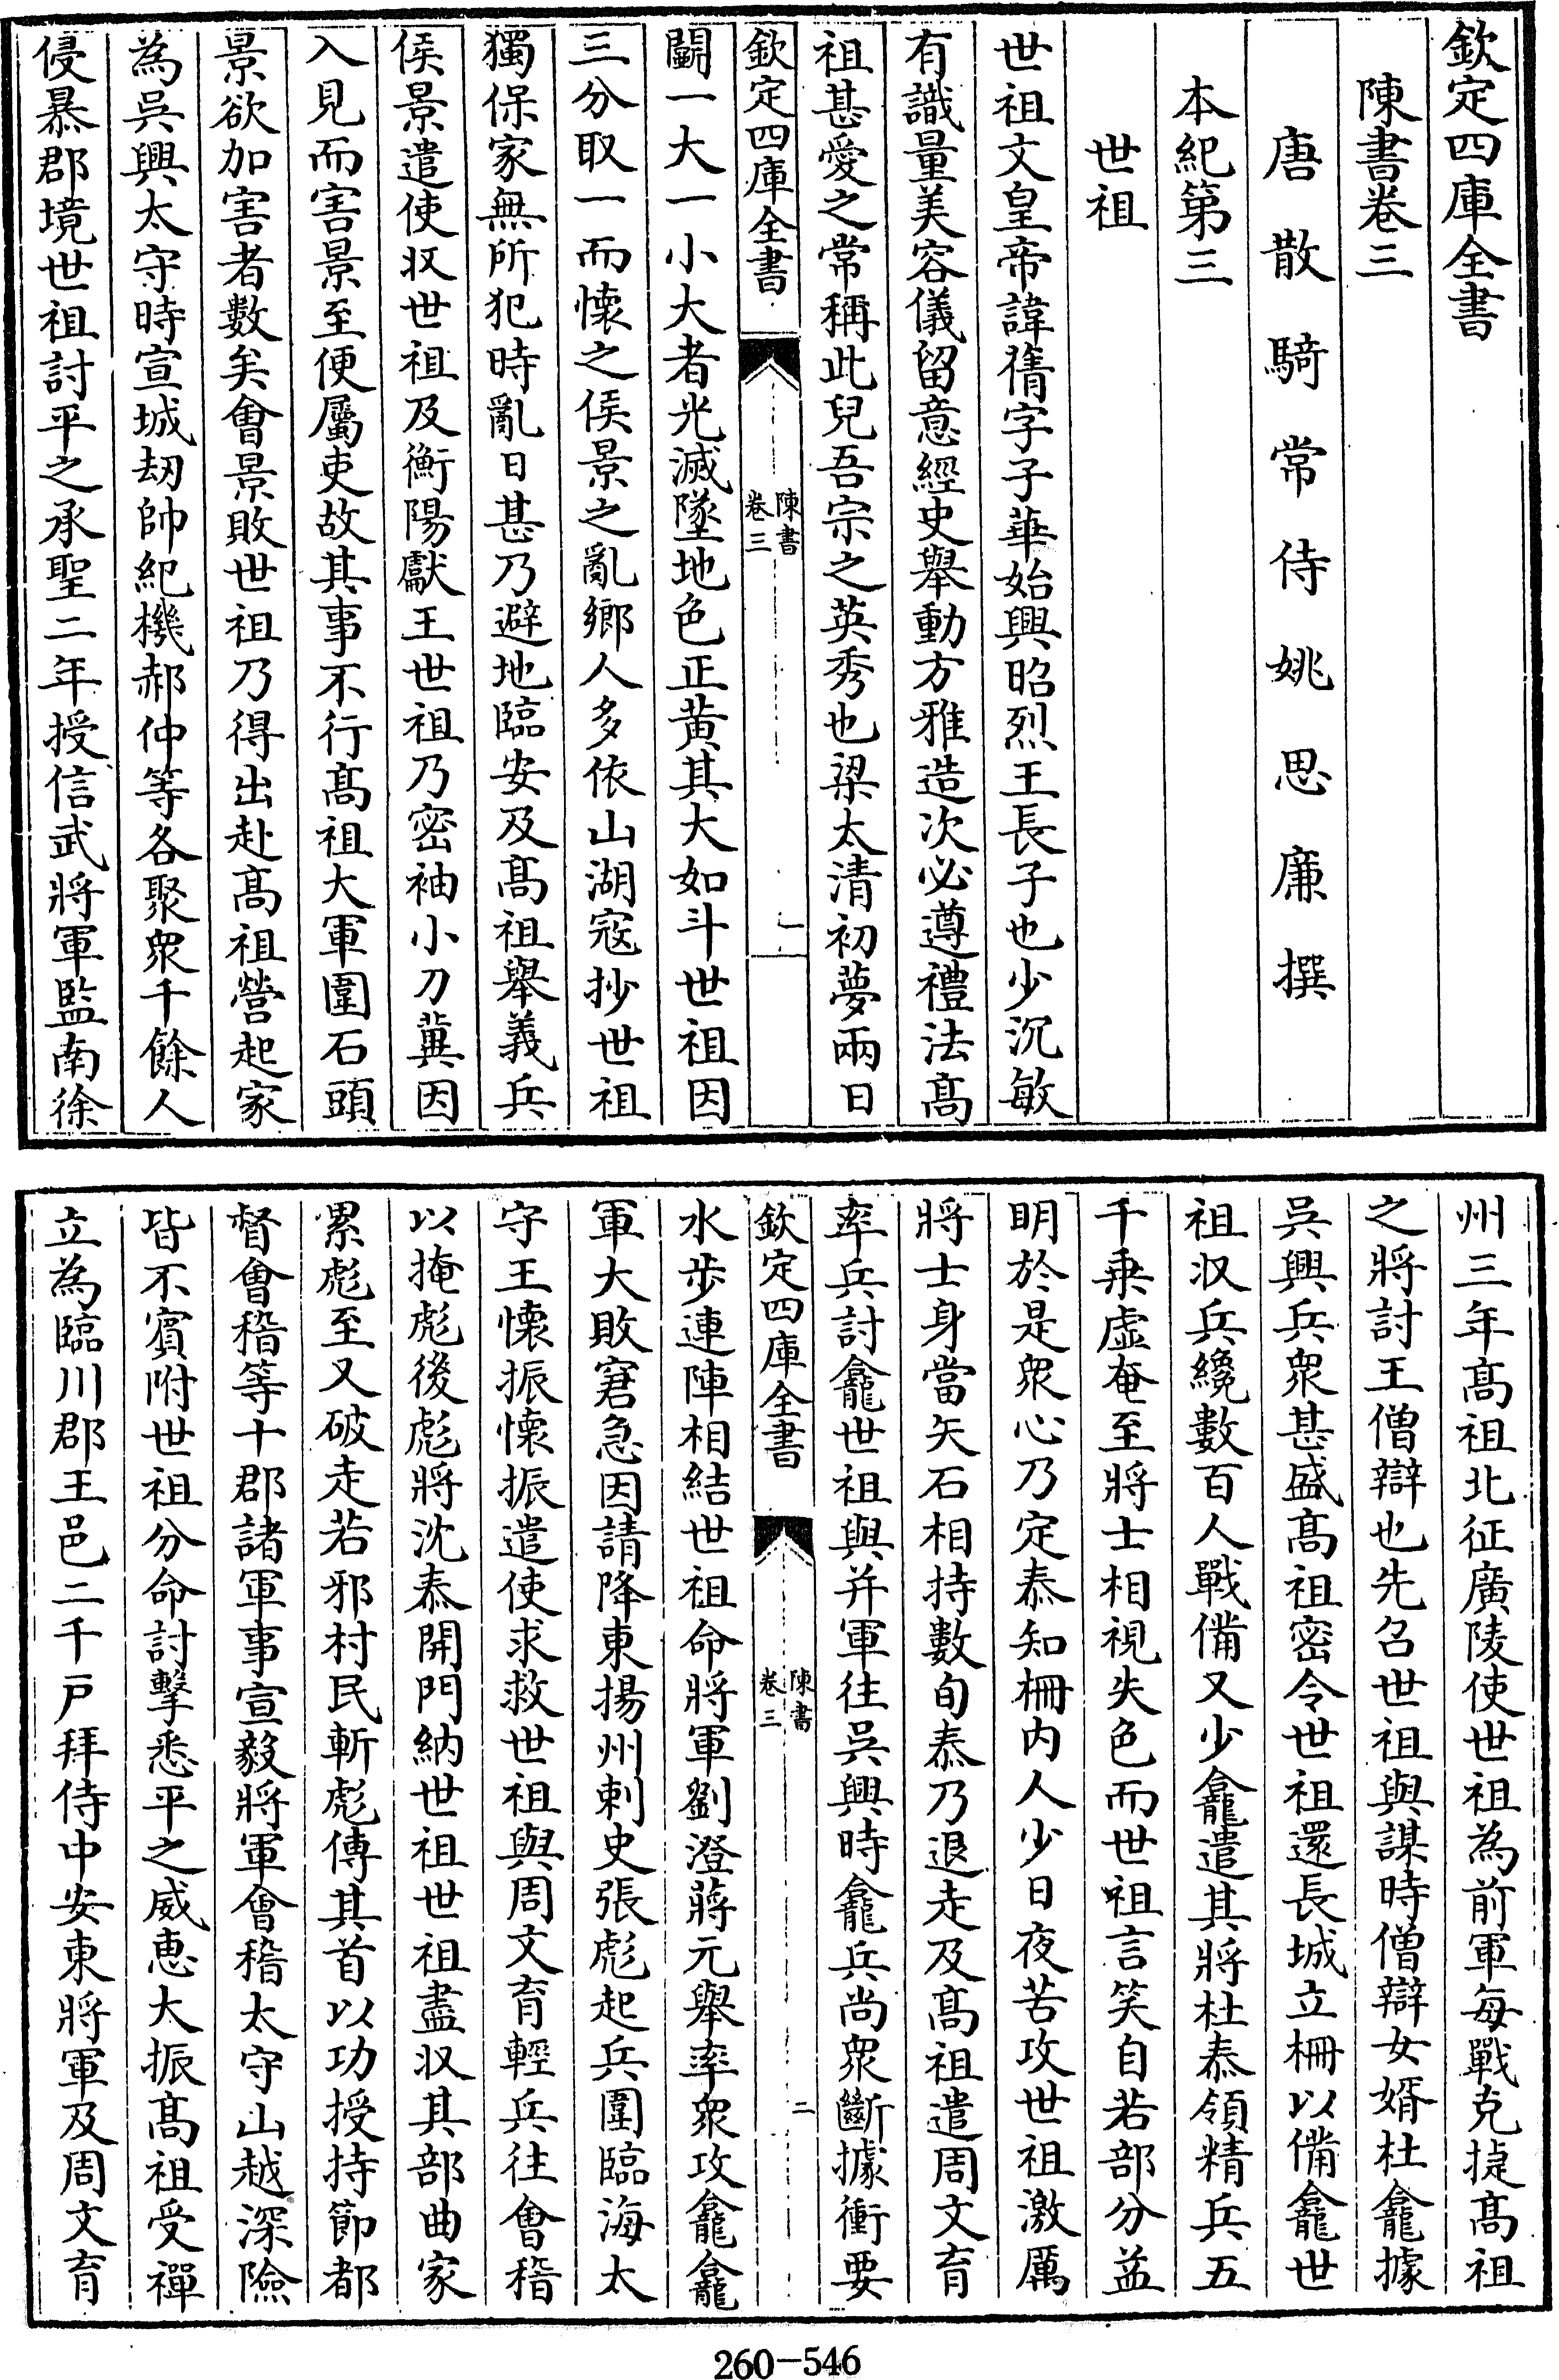 欽定四庫全書
陳書卷三
唐散騎常侍姚思廉撰
本紀第三
世祖
世祖文皇帝諱蒨字子華始興昭烈王長子也少沉敏
有識量美容儀留意經史舉動方雅造次必遵禮法髙
祖甚愛之常稱此兒吾宗之英秀也梁太清初夢兩日
欽定四庫全書
陳書
卷三
一
鬬一大一小大者光滅墜地色正黄其大如斗世祖因
三分取一而懷之侯景之亂鄉人多依山湖寇抄世祖
獨保家無所犯時亂日甚乃避地臨安及髙祖舉義兵
侯景遣使収世祖及衡陽獻王世祖乃密袖小刀冀因
入見而害景至便屬吏故其事不行髙祖大軍圍石頭
景欲加害者數矣會景敗世祖乃得出赴髙祖營起家
為吳興太守時宣城刼帥紀機郝仲等各聚衆千餘人
侵暴郡境世祖討平之承聖二年授信武將軍監南徐
州三年髙祖北征廣陵使世祖為前軍每戰克捷髙祖
之將討王僧辯也先召世祖與謀時僧辯女婿杜龕據
吳興兵衆甚盛髙祖密令世祖還長城立柵以備龕世
祖収兵纔數百人戰備又少龕遣其將杜泰領精兵五
千乗虚奄至將士相視失色而世祖言笑自若部分益
明於是衆心乃定泰知柵内人少日夜苦攻世祖激厲
將士身當矢石相持數旬泰乃退走及髙祖遣周文育
率兵討龕世祖與并軍往吳興時龕兵尚衆斷據衝要
欽定四庫全書
陳書
卷三
二
水步連陣相結世祖命將軍劉澄蔣元舉率衆攻龕龕
軍大敗窘急因請降東揚州刺史張彪起兵圍臨海太
守王懷振懷振遣使求救世祖與周文育輕兵往會稽
以掩彪後彪將沈泰開門納世祖世祖盡収其部曲家
累彪至又破走若邪村民斬彪傳其首以功授持節都
督會稽等十郡諸軍事宣毅將軍會稽太守山越深險
皆不賓附世祖分命討擊悉平之威惠大振髙祖受禪
立為臨川郡王邑二千戸拜侍中安東將軍及周文育
260-546